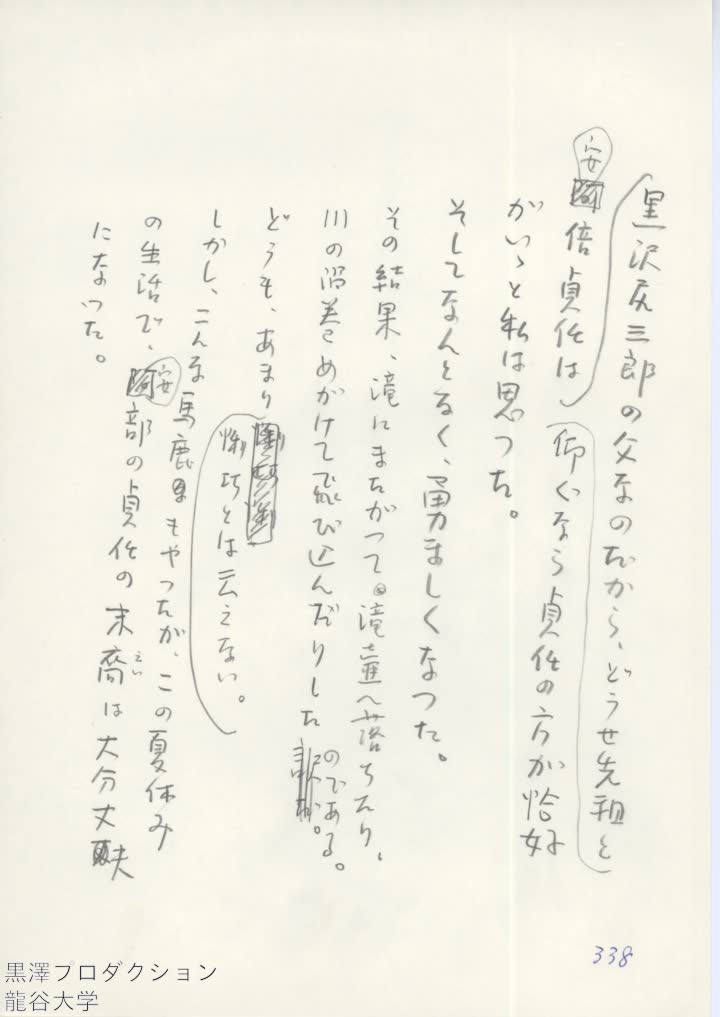 黒沢尻三郎の父なのだから、どうせ先祖と
安倍貞任は仰ぐなら貞任の方が恰好
がいゝと私は思つた。
そしてなんとなく、勇ましくなつた。
その結果、滝にまたがつて。滝壷へ落ちたり、
川の渦巻めがけて飛び込んだりしたのである。
どうも、あまり
悧巧とは云えない。
しかし、こんな馬鹿もやつたが、この夏休み
の生活で、安部の貞任の末裔えいは大分丈夫
になつた。
338
黒澤プロダクション
龍谷大学